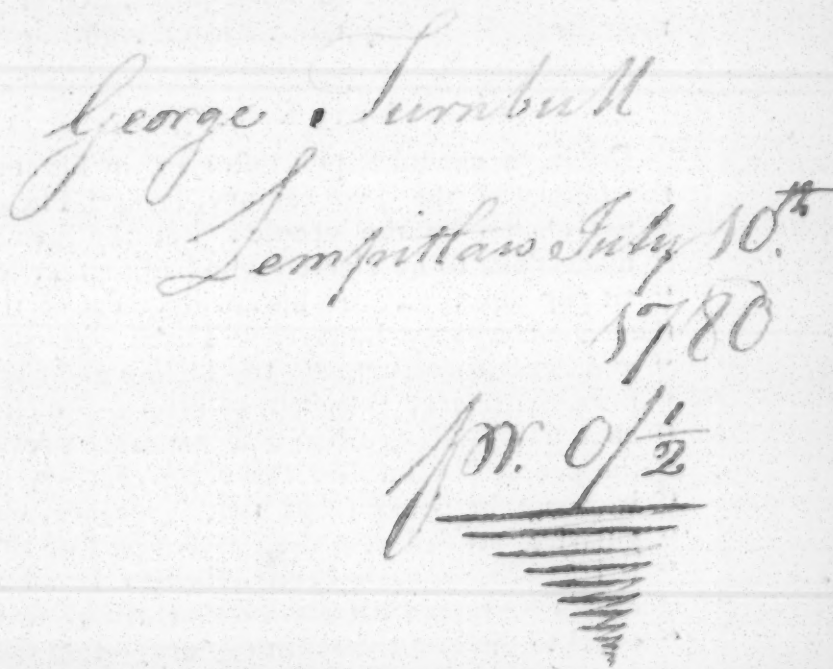 George . Turnbull
Lempitlaw July 10.th
1780
pr. 0/ 1/2